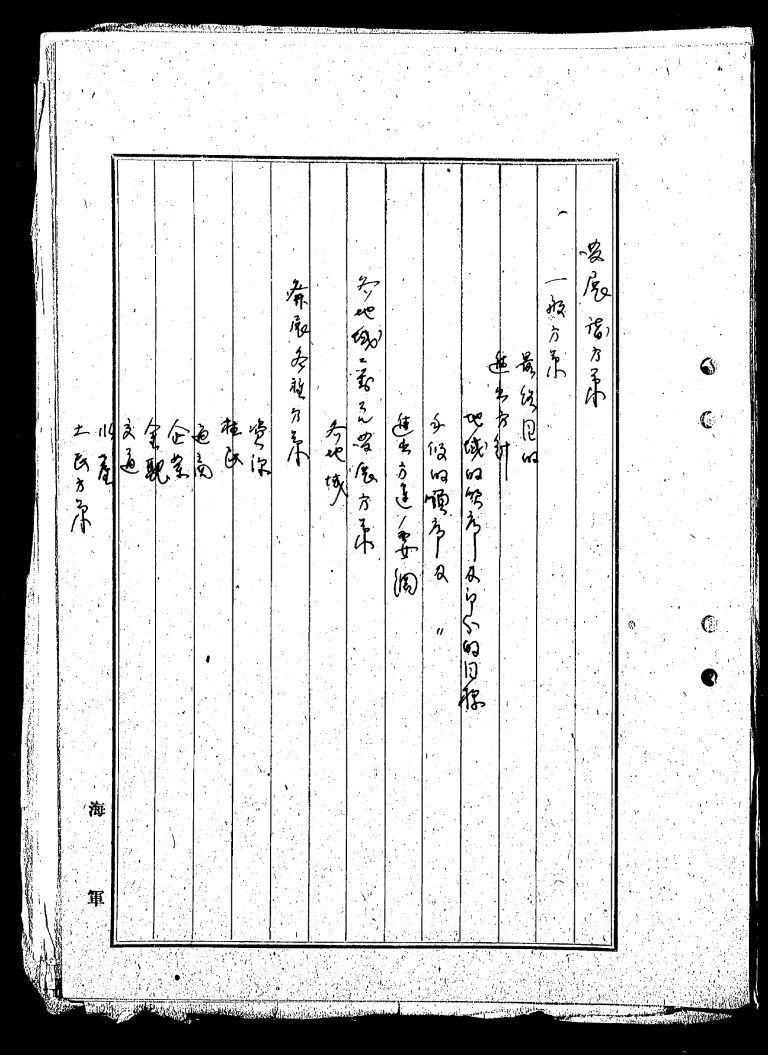 発展諸方策
一般方策
最終目的
進出方針
地域的順序及部分的目標
手段的順序及〃
進出方途ノ要綱
各地域ニ対スル発展方策
各地域
発展各種方策
資源
植民
通商
企業
金融
交通
土民方策
海軍